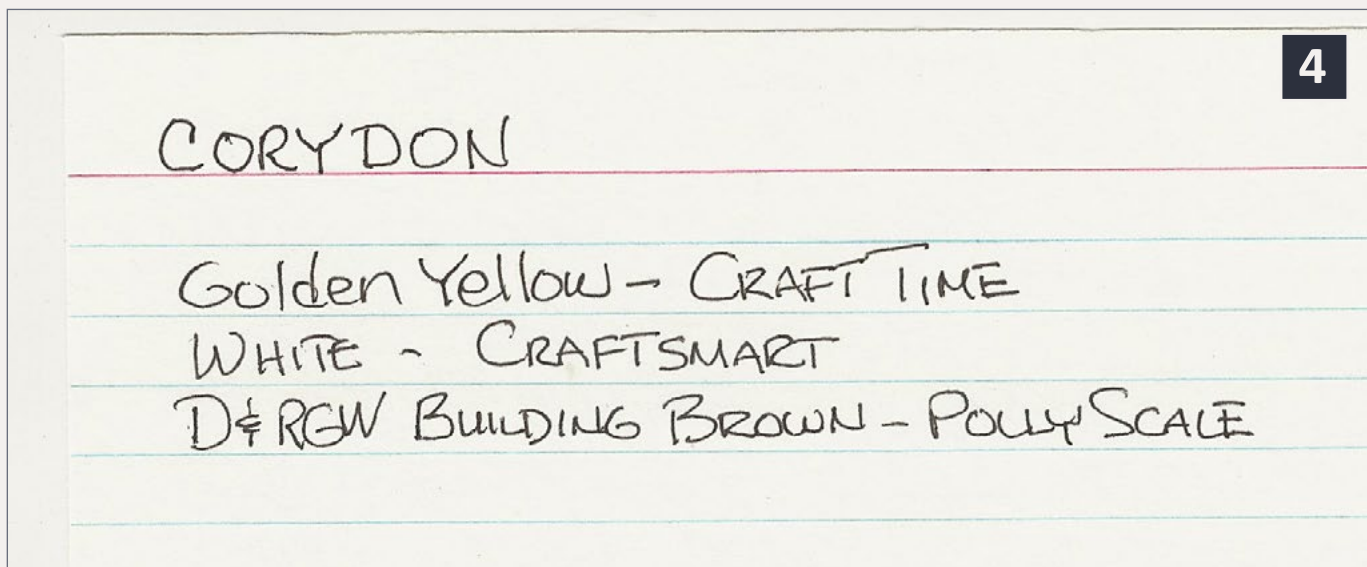 4
CORYDON
Golden Yellow – CRAFT TIME
WHITE - CRAFTSMART
D&RGW BUILDING BROWN – POLLY SCALE